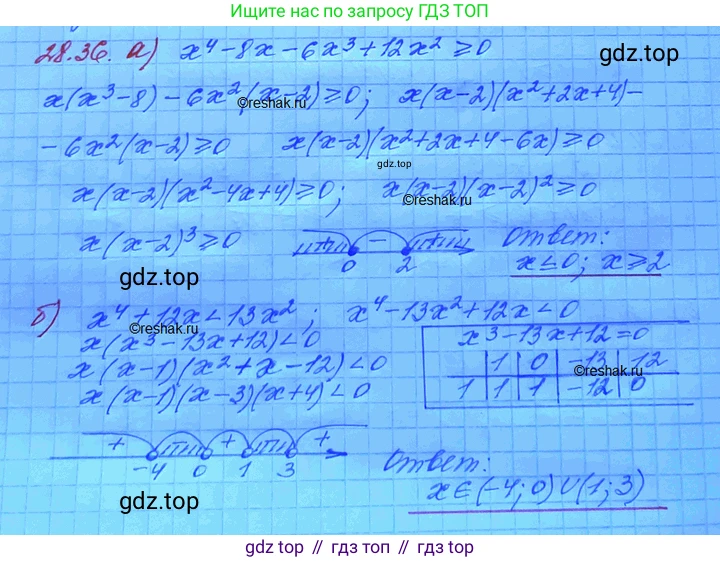 Ищите нас по запросу ГДЗ ТОП
28.36. а) x⁴ - 8x - 6x³ + 12x² ≥ 0 gdz.top
x(x³-8) - 6x²(x-2) ≥ 0; x(x-2)(x²+2x+4) -
©reshak.ru
- 6x²(x-2) ≥ 0 x(x-2)(x²+2x+4-6x) ≥ 0
gdz.top
x(x-2)(x²-4x+4) ≥ 0; x(x-2)(x-2)² ≥ 0
©reshak.ru
x(x-2)³ ≥ 0 + - + Ответ:
0 2 x ≤ 0; x ≥ 2
gdz.top
б) x⁴ + 12x < 13x²; x⁴ - 13x² + 12x < 0
©reshak.ru
x(x³ - 13x + 12) < 0 x³ - 13x + 12 = 0
x(x-1)(x² + x - 12) < 0 1 0 -13 12
©reshak.ru
x(x-1)(x-3)(x+4) < 0 1 1 1 -12 0
+ + +
-4 0 1 3 Ответ:
gdz.top x ∈ (-4; 0) ∪ (1; 3)
gdz.top // гдз топ // gdz.top